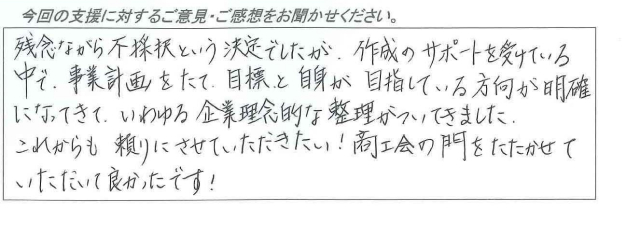 今回の支援に対するご意見・ご感想をお聞かせください。
残念ながら不採択という決定でしたが、作成のサポートを受けている
中で、事業計画をたて、目標と自身が目指している方向が明確
になってきて、いわゆる企業理念的な整理がついてきました。
これからも頼りにさせていただきたい！商工会の門をたたかせて
いただいて良かったです！